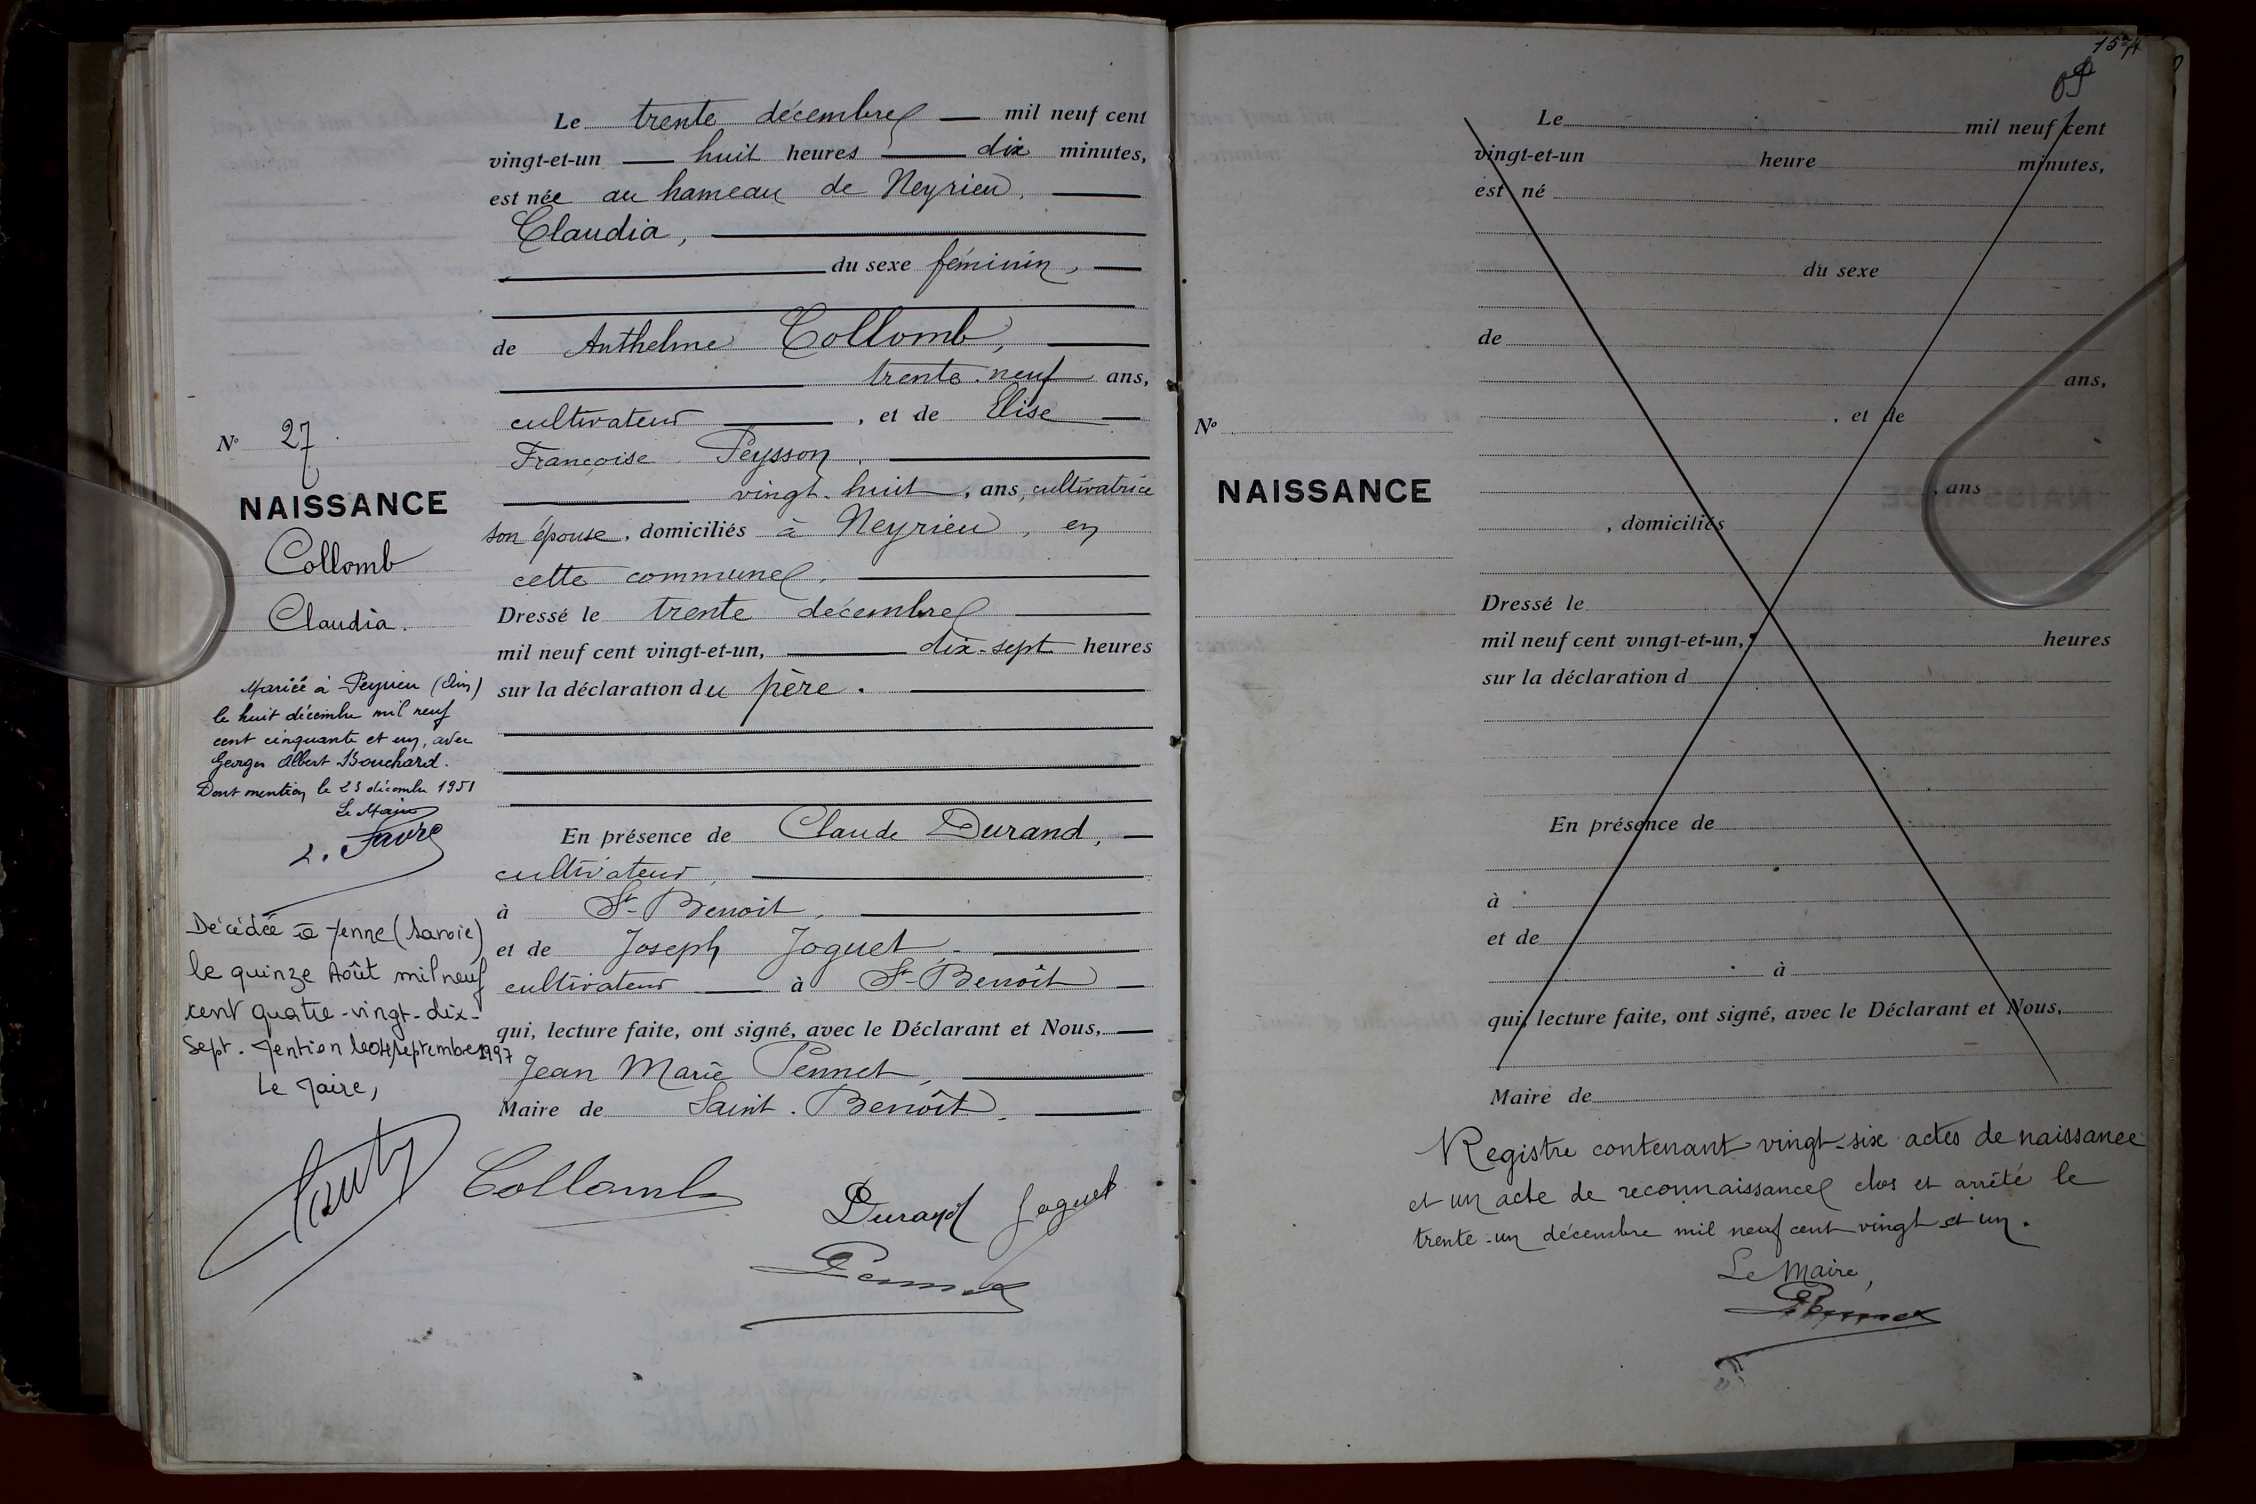 Le trente décembre mil neuf cent
vingt-et-un huit heures dix minutes,
est née au hameau de Neyrieu,
Claudia,
du sexe féminin,
de Anthelme Collomb,
trente-neuf ans,
cultivateur, et de Elise
Françoise Peysson,
vingt-huit, ans, cultivatrice
son épouse, domiciliés à Neyrieu, en
cette commune,
Dressé le trente décembre
mil neuf cent vingt-et-un, dix-sept heures
sur la déclaration du père.
En présence de Claude Durand,
cultivateur,
à St-Benoit,
et de Joseph Joguet,
cultivateur à St-Benoît
qui, lecture faite, ont signé, avec le Déclarant et Nous,
Jean Marie Pennet,
Maire de Saint-Benoît.
Collomb
Durand Joguet
Pennet
No 27.
NAISSANCE
Collomb
Claudia.
Mariée à Peyrieu (Ain)
le huit décembre mil neuf
cent cinquante et un, avec
Georges Albert Bouchard.
Dont mention le 23 décembre 1951
Le Maire
L. Favre
Décédée à Yenne (Savoie)
le quinze Août mil neuf
cent quatre-vingt-dix-
sept. Mention le 04 septembre 1997
Le Maire,
No
NAISSANCE
Le mil neuf cent
vingt-et-un heure minutes,
est né
du sexe
de
ans,
, et de
, ans
, domiciliés
Dressé le
mil neuf cent vingt-et-un, heures
sur la déclaration d
En présence de
à
et de
à
qui, lecture faite, ont signé, avec le Déclarant et Nous,
Maire de
Registre contenant vingt-six actes de naissance
et un acte de reconnaissance clos et arrêté le
trente-un décembre mil neuf cent vingt et un.
Le Maire,
Pennet